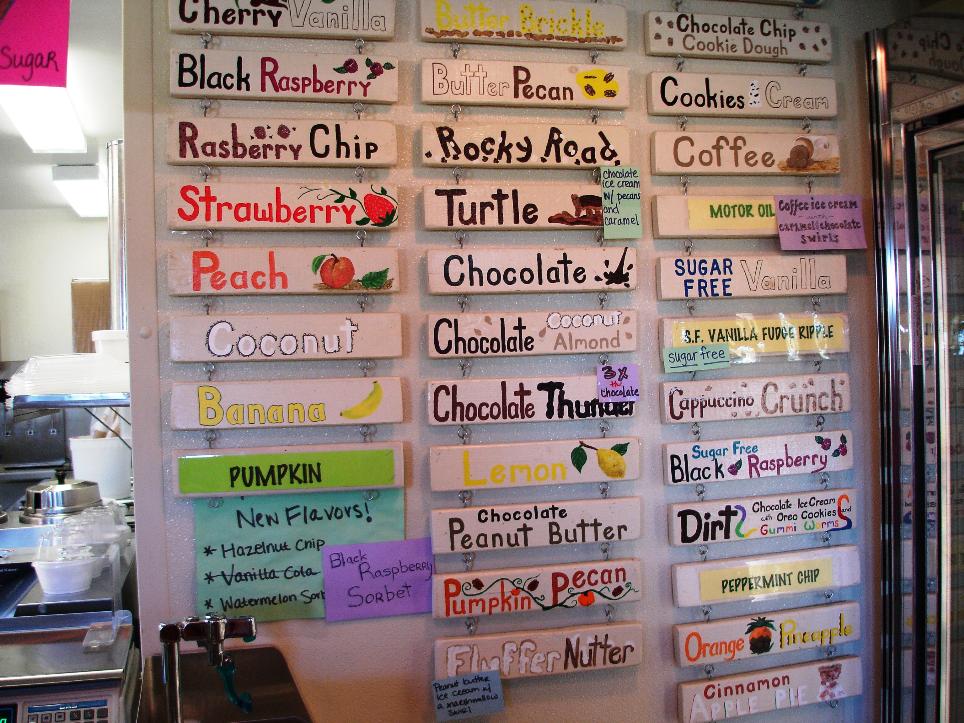 Sugar
Cherry Vanilla
Black Raspberry
Rasberry Chip
Strawberry
Peach
Coconut
Banana
PUMPKIN
New Flavors!
* Hazelnut Chip
* Vanilla Cola
* Watermelon
Black
Raspberry
Sorbet
Butter Brickle
Butter Pecan
Rocky Road
Turtle
chocolate
ice cream
w/ pecans
and
caramel
Chocolate
Chocolate Coconut
Almond
3x
the
chocolate
Chocolate Thunder
Lemon
Chocolate
Peanut Butter
Pumpkin Pecan
Fluffer Nutter
Peanut butter
ice cream w/
a marshmallow
swirl
Chocolate Chip
Cookie Dough
Cookies & Cream
Coffee
MOTOR OIL
Coffee ice cream
with
caramel/chocolate
swirls
SUGAR
FREE Vanilla
S.F. VANILLA FUDGE RIPPLE
sugar free
Cappuccino Crunch
Sugar Free
Black Raspberry
Dirt Chocolate Ice Cream
with Oreo Cookies and
Gummi Worms
PEPPERMINT CHIP
Orange Pineapple
Cinnamon
APPLE PIE